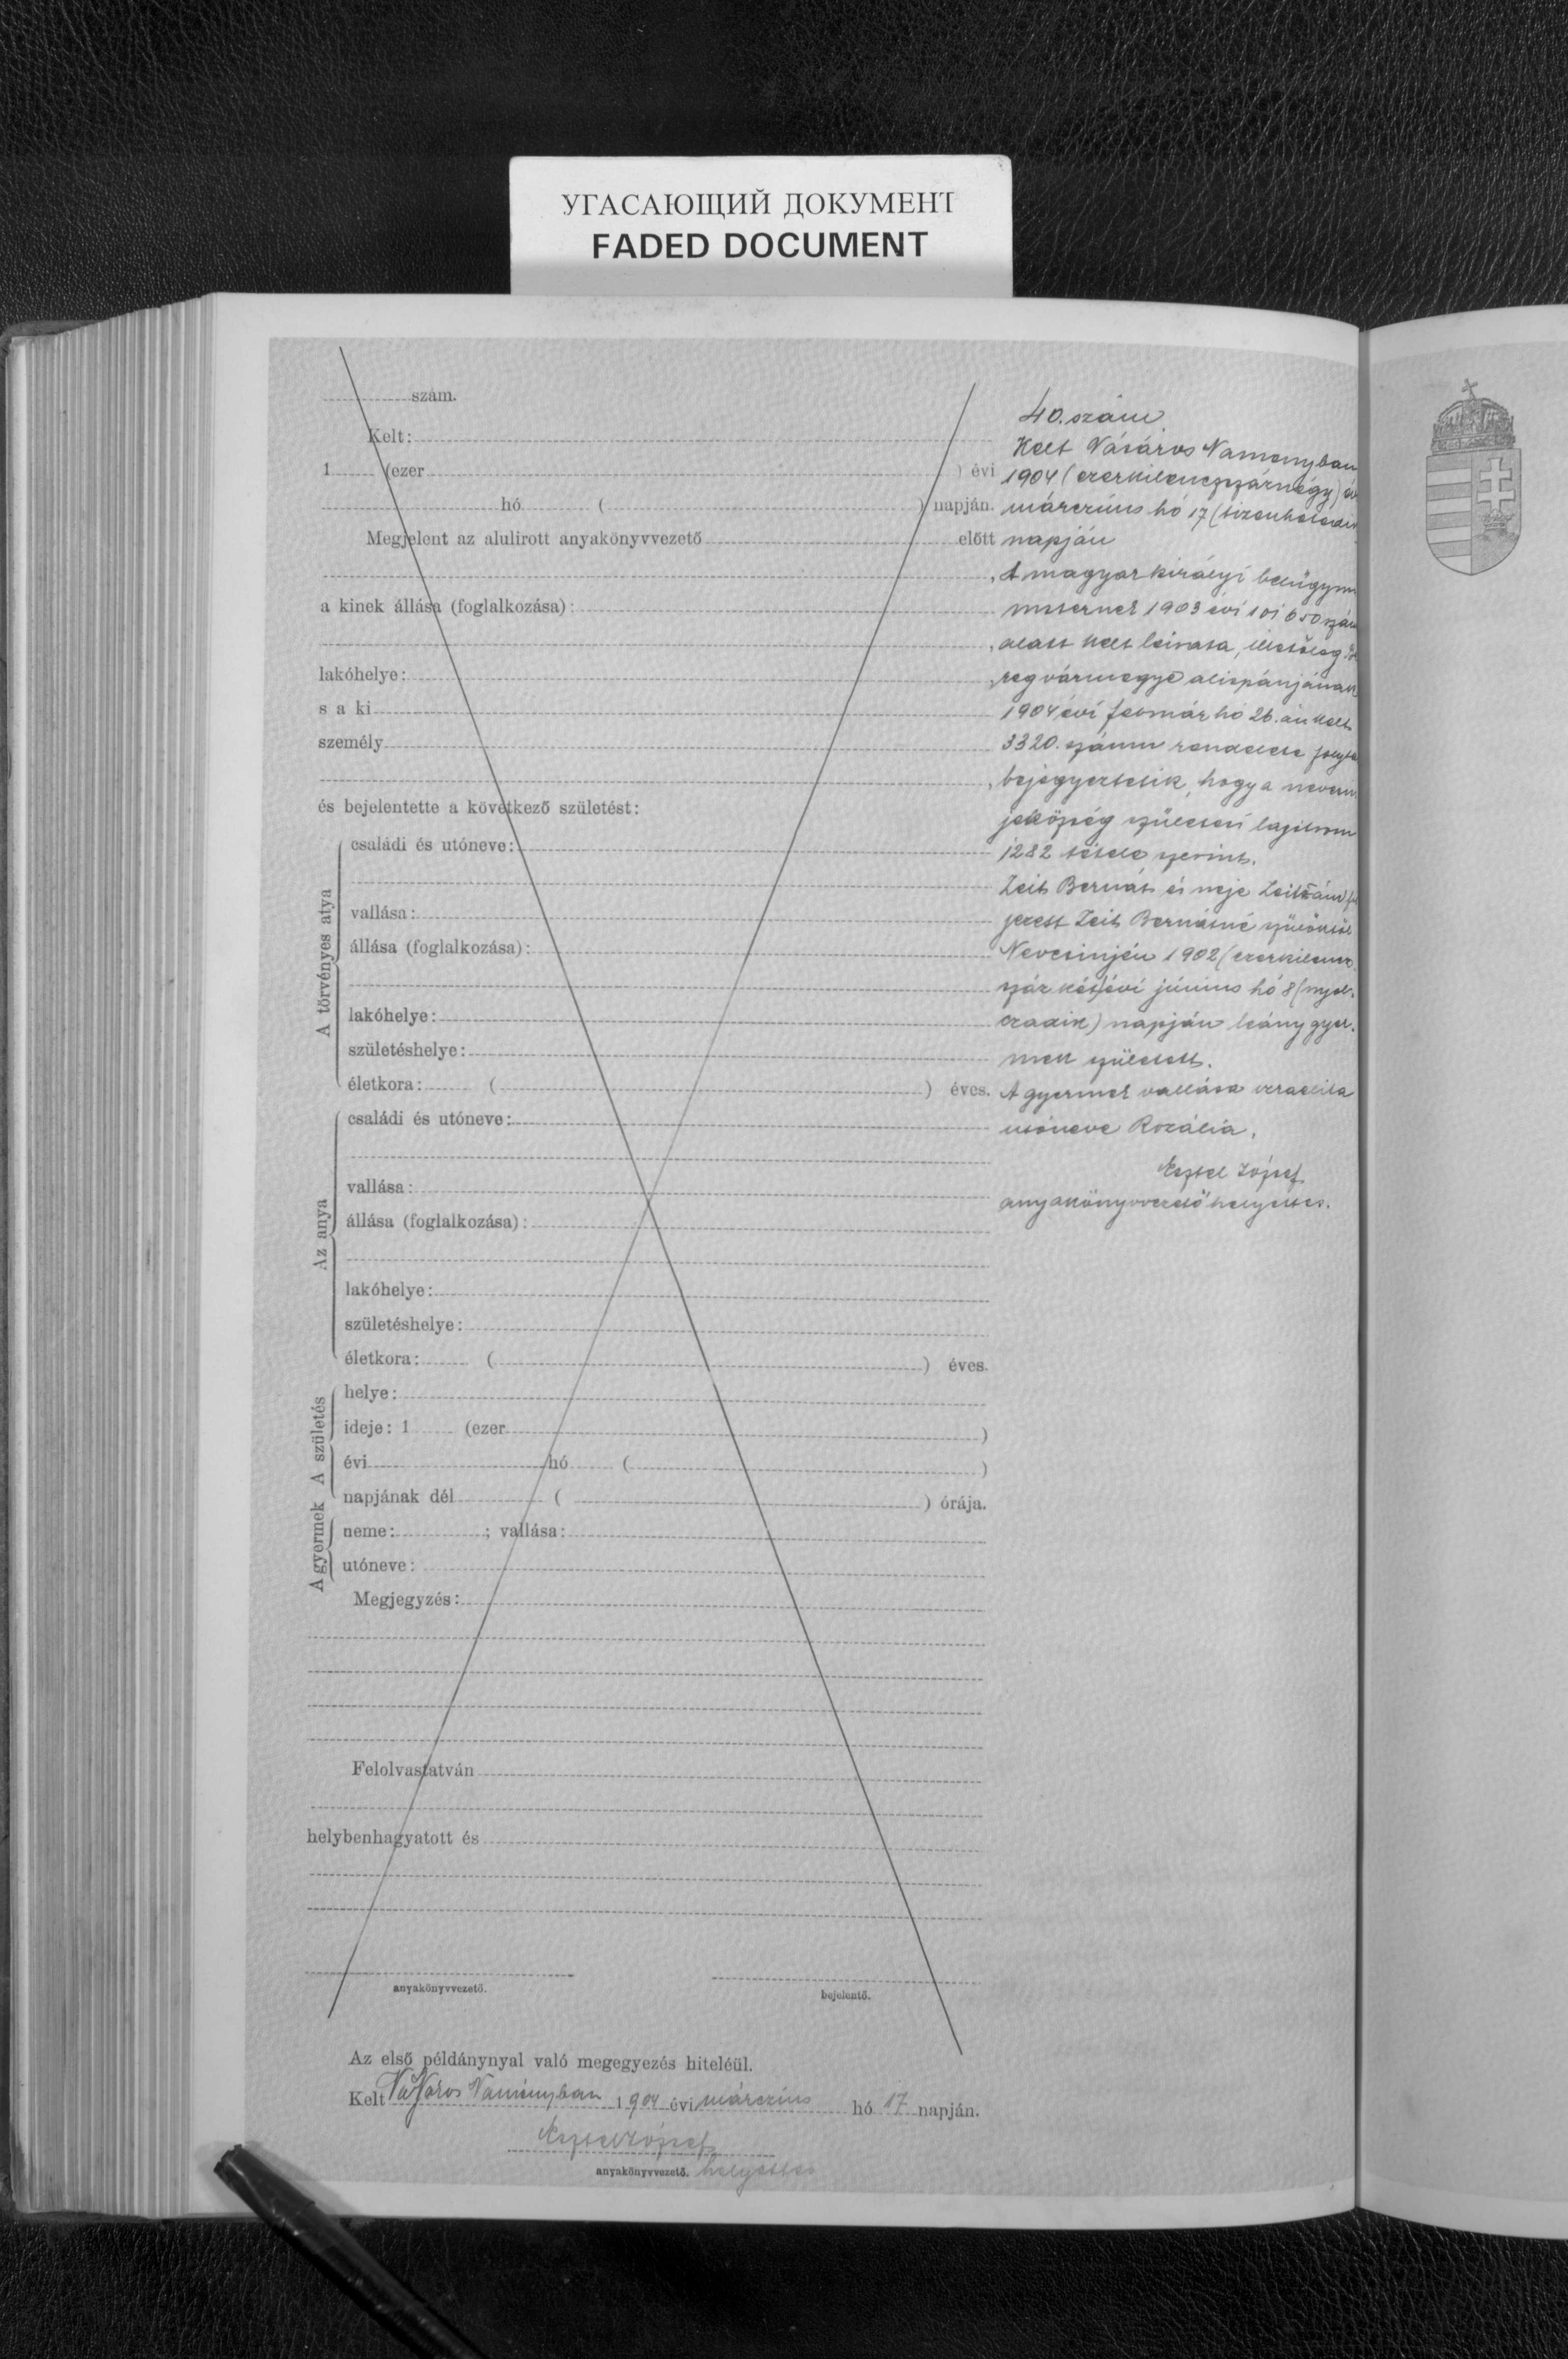 УГАСАЮЩИЙ ДОКУМЕНТ
FADED DOCUMENT
szám.
Kelt:
1 (ezer ) évi
hó ( ) napján.
Megjelent az alulirott anyakönyvvezető előtt
,
a kinek állása (foglalkozása):
,
lakóhelye: ,
s a ki
személy
,
és bejelentette a következő születést:
A törvényes atya
családi és utóneve:
vallása:
állása (foglalkozása):
lakóhelye:
születéshelye:
életkora: ( ) éves.
Az anya
családi és utóneve:
vallása:
állása (foglalkozása):
lakóhelye:
születéshelye:
életkora: ( ) éves.
A születés
helye:
ideje: 1 (ezer )
évi hó ( )
napjának dél ( ) órája.
A gyermek
neme: ; vallása:
utóneve:
Megjegyzés:
Felolvastatván
helybenhagyatott és
anyakönyvvezető.
bejelentő.
40. szám
Kelt Vásáros Naményban
1904 (ezerkilenczszáznégy) év
márczius hó 17 (tizenhetedik
napján
A magyar királyi belügymi
niszernek 1903 évi szám
alatt kelt leirata, illetőleg
reg vármegye alispánjának
1904 évi február hó 26. án kelt
3320. számu rendelete folytá
bejegyeztetik, hogy a nevesin
jeközség születési lajstrom
1282 tétele szerint.
Zeit Bernát és neje
Zeit Bernátné szülőktől
Nevesinjén 1902 (ezerkilencz
száz két) évi június hó 8 (nyol-
czadik) napján leány gyer-
mek született.
A gyermek vallása izraelita
utóneve Rozália.
József
anyakönyvvezető helyettes.
Az első példánynyal való megegyezés hiteléül.
Kelt Vásáros Naményban 1904 évi márczius hó 17 napján.
József
anyakönyvvezető. helyettes